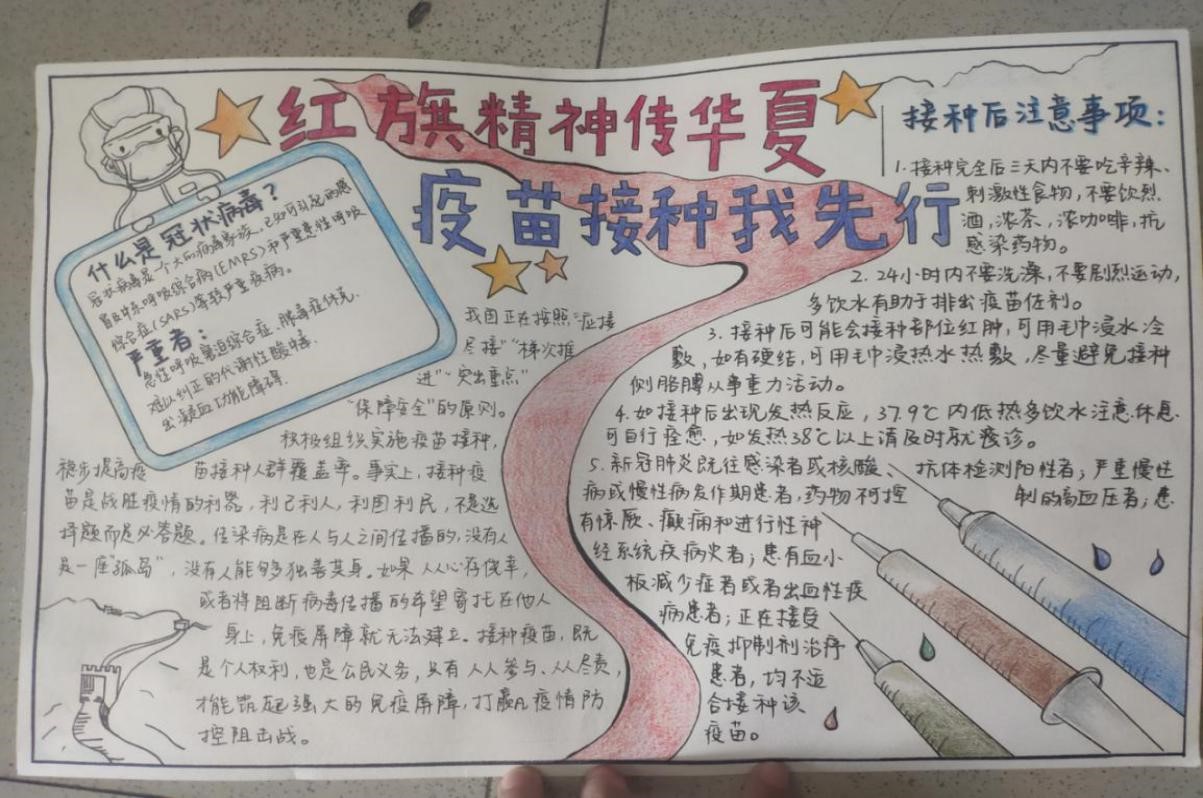 红旗精神传华夏
疫苗接种我先行
什么是冠状病毒？
冠状病毒是一个大的病毒家族，已知可引起的感
冒及中东呼吸综合病(EMRS)和严重急性呼吸
综合症(SARS)等较严重疾病。
严重者：
急性呼吸窘迫综合症、脓毒症休克、
难以纠正的代谢性酸中毒、
出凝血功能障碍.
我国正在按照“应接
尽接”“梯次推
进”“突出重点”
“保障安全”的原则。
积极组织实施疫苗接种，
稳步提高疫 苗接种人群覆盖率。事实上，接种疫
苗是战胜疫情的利器，利己利人，利国利民，不是选
择题而是必答题。传染病是在人与人之间传播的，没有人
是一座“孤岛”，没有人能够独善其身。如果人人心存侥幸，
或者将阻断病毒传播的希望寄托在他人
身上，免疫屏障就无法建立。接种疫苗，既
是个人权利，也是公民义务，只有人人参与、人人尽责，
才能筑起强大的免疫屏障，打赢疫情防
控阻击战。
接种后注意事项：
1.接种完全后三天内不要吃辛辣、
刺激性食物，不要饮烈
酒，浓茶，浓咖啡，抗
感染药物。
2.24小时内不要洗澡，不要剧烈运动，
多饮水有助于排出疫苗佐剂。
3.接种后可能会接种部位红肿，可用毛巾浸水冷
敷，如有硬结，可用毛巾浸热水热敷，尽量避免接种
侧胳膊从事重力活动。
4.如接种后出现发热反应，37.9℃内低热多饮水注意休息
可自行痊愈，如发热38℃以上请及时就医诊。
5.新冠肺炎既往感染者或核酸、抗体检测阳性者；严重慢性
病或慢性病发作期患者，药物不可控制的高血压者；患
有惊厥、癫痫和进行性神
经系统疾病史者；患有血小
板减少症者或者出血性疾
病患者；正在接受
免疫抑制剂治疗
患者，均不适
合接种该
疫苗。